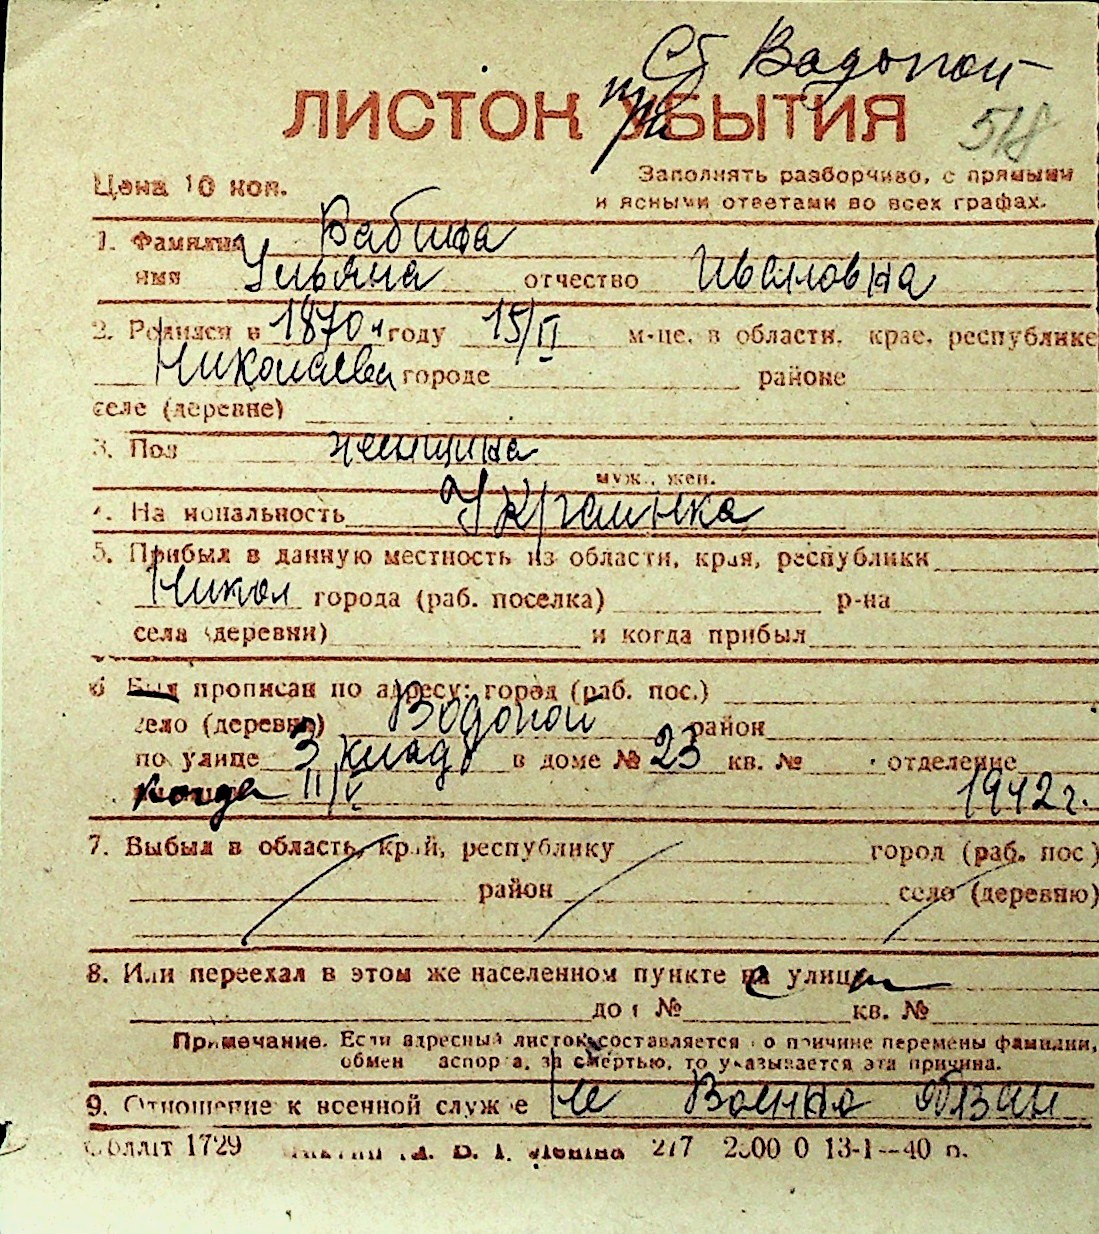 Ст Водопой
ЛИСТОК при УБЫТИЯ
518
Цена 10 коп. Заполнять разборчиво, с прямыми
и ясными ответами во всех графах.
1. Фамилия Бабина
имя Ульяна отчество Ивановна
2. Родился в 1870 г году 15/II м-це, в области, крае, республике
Николаев городе районе
селе (деревне)
3. Пол женщина
муж., жен.
4. Национальность Украинка
5. Прибыл в данную местность из области, края, республики
Никол города (раб. поселка) р-на
села (деревни) и когда прибыл
6 Был прописан по адресу: город (раб. пос.)
село (деревня) Водопой район
по улице 3 в доме № 23 кв. № отделение
когда II/V 1942 г.
7. Выбыл в область, край, республику город (раб. пос.)
район село (деревню)
8. Или переехал в этом же населенном пункте на улицу
дом № кв. №
Примечание. Если адресный листок составляется по причине перемены фамилии,
обмен паспорта, за смертью, то указывается эта причина.
9. Отношение к военной службе Не Военно обязан
Облліт 1729 Ілліча 217 2000 0 13-I—40 р.